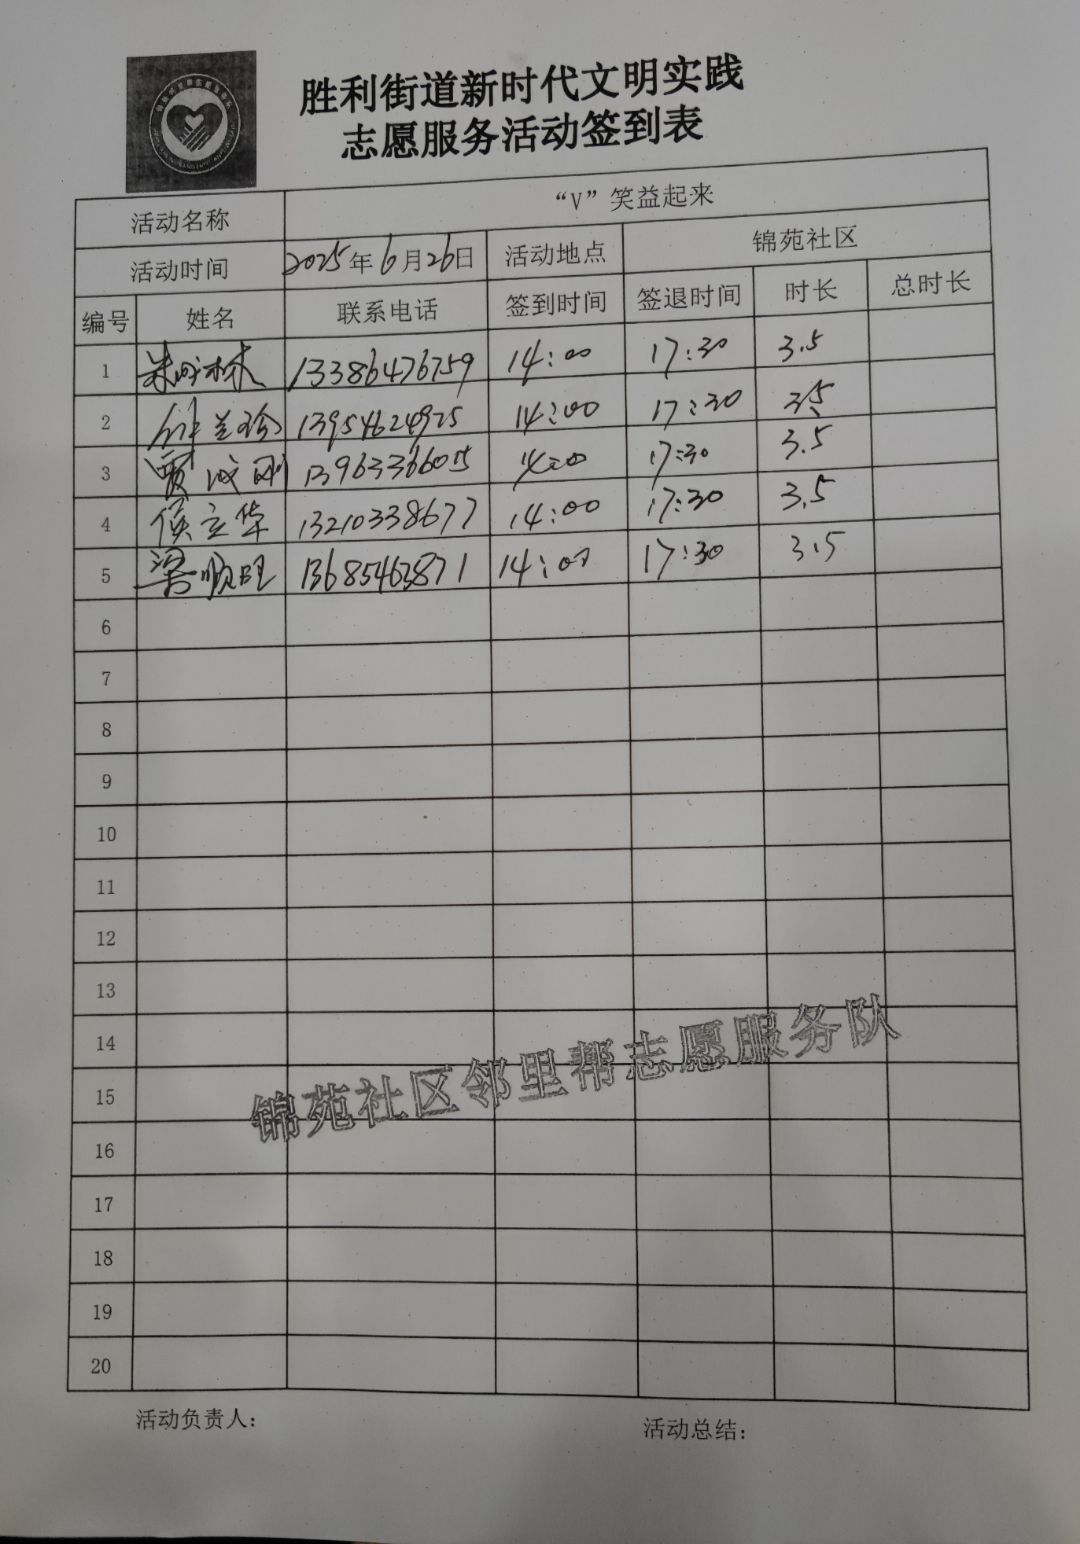 胜利街道新时代文明实践
志愿服务活动签到表
活动名称 “V”笑益起来
活动时间 2025年6月26日 活动地点 锦苑社区
编号 姓名 联系电话 签到时间 签退时间 时长 总时长
1 林 13386476759 14:00 17:30 3.5
2 兰珍 13954624925 14:00 17:30 3.5
3 贾成刚 13963366015 14:00 17:30 3.5
4 侯立华 13210338677 14:00 17:30 3.5
5 梁顺旺 13685463871 14:00 17:30 3.5
6
7
8
9
10
11
12
13
14
15
16
17
18
19
20
锦苑社区邻里帮志愿服务队
活动负责人： 活动总结：